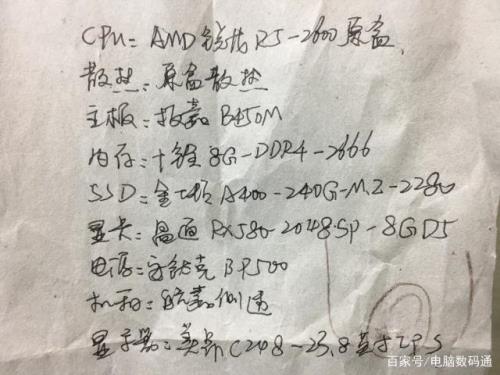 CPU=AMD锐龙R5-2600原盒
散热=原盒散热
主板=技嘉B450M
内存=十铨8G-DDR4-2666
SSD=金士顿A400-240G-M2-2280
显卡=盈通RX580-2048SP-8GD5
电源=安钛克BP500
机箱=航嘉
显示器=C248-23.8英寸IPS
百家号/电脑数码通